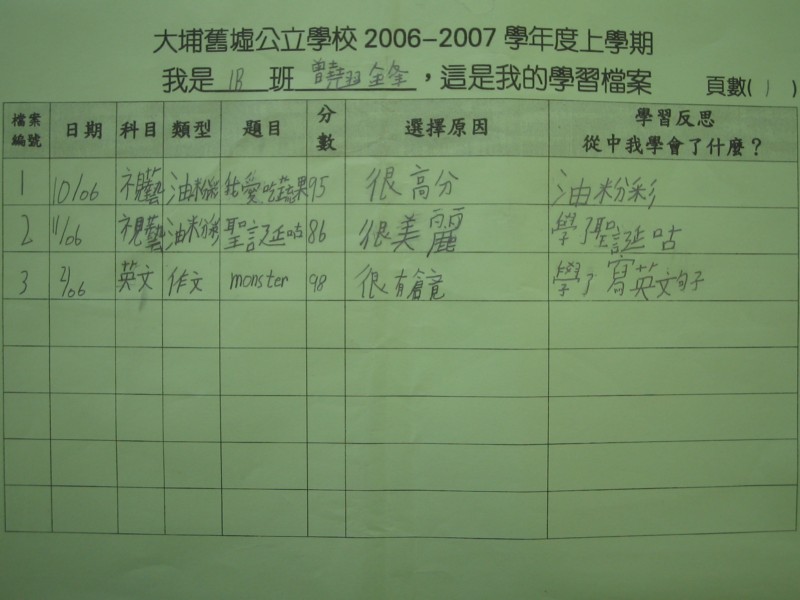 大埔舊墟公立學校 2006-2007 學年度上學期
我是 1B 班 曾翹鋒，這是我的學習檔案 頁數( 1 )
檔案編號 日期 科目 類型 題目 分數 選擇原因 學習反思 從中我學會了什麼？
1 10/06 視藝 油粉彩 我愛吃蔬果 95 很高分 油粉彩
2 11/06 視藝 油粉彩 聖誕咭 86 很美麗 學了聖誕咭
3 2/06 英文 作文 monster 98 很有 學了寫英文句子